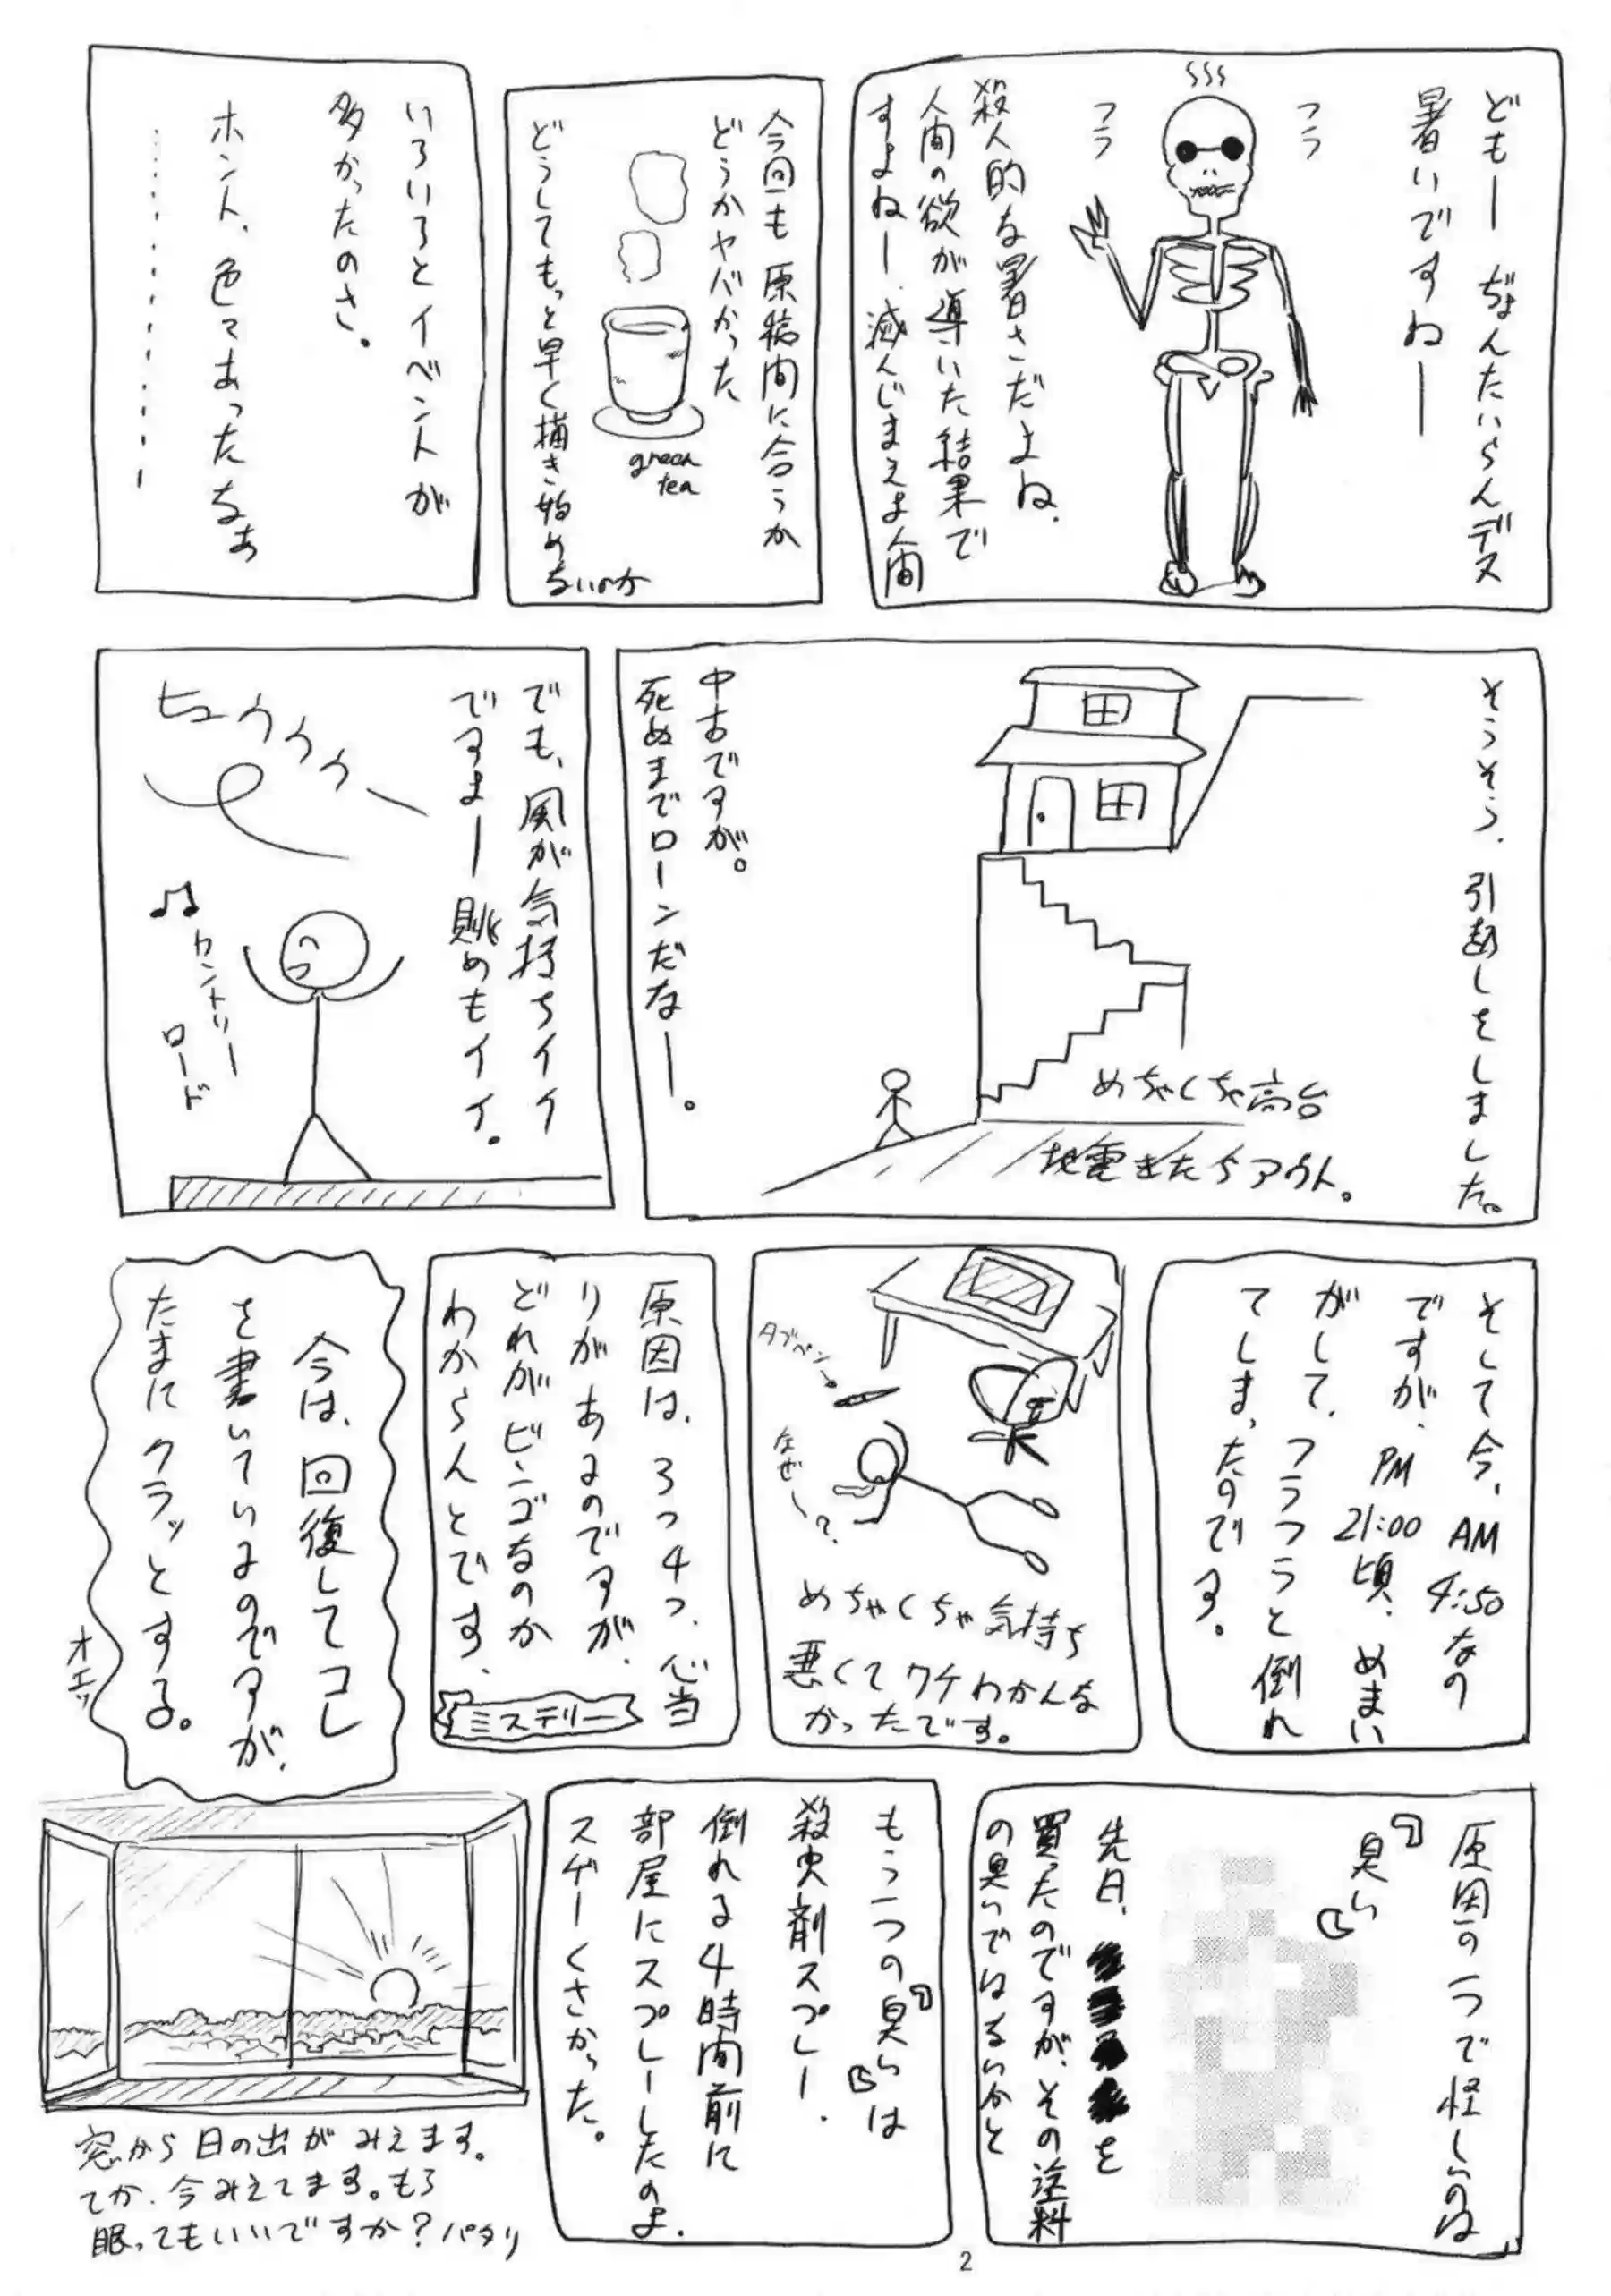 どもー ぢょんたいらんデス
暑いですねー
フラ
フラ
殺人的な暑さだよね、
人間の欲が導いた結果で
すよねー、滅んじまえよ人間
今回も原稿間に合うか
どうかヤバかった
green
tea
どうしてもっと早く描き始め
ないのか
いろいろとイベントが
多かったのさ。
ホント、色々あったなぁ
そうそう、引越しをしました。
めちゃくちゃ高台
地震きたらアウト。
中古ですが。
死ぬまでローンだなー。
でも、風が気持ちイイ
ですよー眺めもイイ。
ヒュウウウー
♫カントリー
ロード
そして今、AM4:50なの
ですが、PM21:00頃、めまい
がして、フラフラと倒れ
てしまったのです。
タブペン
なぜ〜?
めちゃくちゃ気持ち
悪くてワケわかんな
かったです。
原因は、3つ4つ、心当
りがあるのですが、
どれがビンゴなのか
わからんとです、
ミステリー
今は、回復してコレ
を書いているのですが、
たまにクラッとする。
オエッ
原因の一つで怪しいのは
「臭い」
先日、
を
買ったのですが、その塗料
の臭いではないかと
もう一つの「臭い」は
殺虫剤スプレー、
倒れる4時間前に
部屋にスプレーしたのよ、
スゲーくさかった。
窓から日の出がみえます。
てか、今みえてます。もう
眠ってもいいですか?パタリ
2